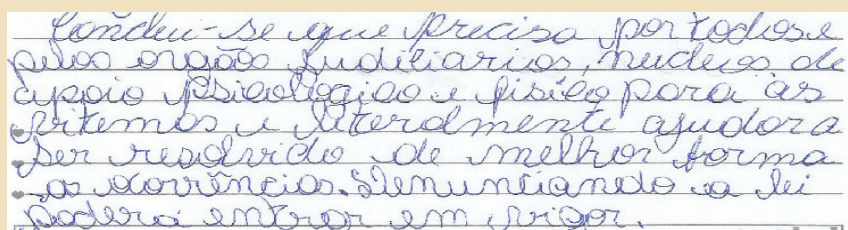 Conclui-se que precisa por todos e
pelos orgãos Judiciarios, nucleos de
apoio psicologico e fisico para as
vitemas e literalmente ajudora
ser resolvido de melhor forma
as ocorrências. Denunciando a lei
podera entrar em vigor.